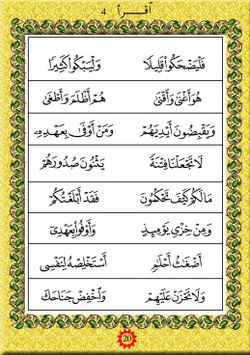 اقرأ 4
فَلْيَضْحَكُوا قَلِيلًا وَلْيَبْكُوا كَثِيرًا
هُوَ أَغْنَىٰ وَأَقْنَىٰ هُمْ أَظْلَمَ وَأَطْغَىٰ
وَيَقْبِضُونَ أَيْدِيَهُمْ وَمَنْ أَوْفَىٰ بِعَهْدِهِ
لَا تَجْعَلْنَا فِتْنَةً يَثْنُونَ صُدُورَهُمْ
مَا لَكُمْ كَيْفَ تَحْكُمُونَ فَقَدْ أَبْلَغْتُكُمْ
وَمِنْ خِزْيِ يَوْمِئِذٍ وَأَوْفُوا بِعَهْدِي
أَضْغَٰثُ أَحْلَٰمٍ أَسْتَخْلِصْهُ لِنَفْسِي
وَلَا تَحْزَنْ عَلَيْهِمْ وَاخْفِضْ جَنَاحَكَ
20